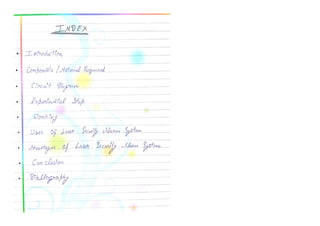 INDEX
• Introduction
• Components / Material Required
• Circuit Diagram
• Experimental Step
• Working
• Uses Of Laser Security Alarm System
• Advantages Of Laser Security Alarm System
• Conclusion
• Bibliography